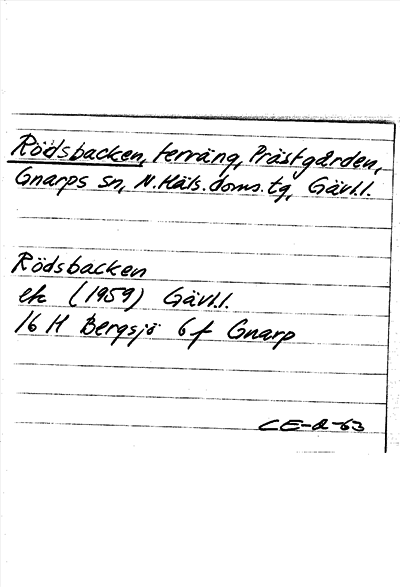 Rödsbacken, terräng, Prästgården,
Gnarps sn, N.Häls.doms.tg, Gävl.l.
Rödsbacken
ek (1959) Gävl.l.
16 H Bergsjö 6 f Gnarp
CE-a-63